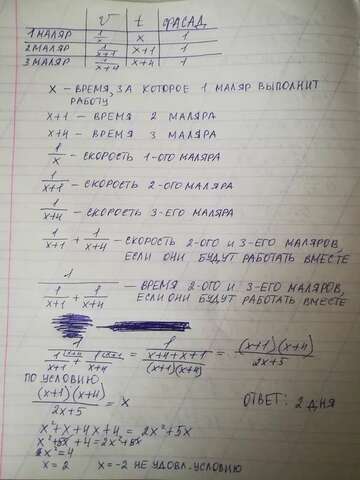 v t ФАСАД
1 МАЛЯР 1/x x 1
2 МАЛЯР 1/x+1 x+1 1
3 МАЛЯР 1/x+4 x+4 1
x – ВРЕМЯ, ЗА КОТОРОЕ 1 МАЛЯР ВЫПОЛНИТ
РАБОТУ
x+1 – ВРЕМЯ 2 МАЛЯРА
x+4 – ВРЕМЯ 3 МАЛЯРА
1/x – СКОРОСТЬ 1-ОГО МАЛЯРА
1/x+1 – СКОРОСТЬ 2-ОГО МАЛЯРА
1/x+4 – СКОРОСТЬ 3-ЕГО МАЛЯРА
1/x+1 + 1/x+4 – СКОРОСТЬ 2-ОГО И 3-ЕГО МАЛЯРОВ,
ЕСЛИ ОНИ БУДУТ РАБОТАТЬ ВМЕСТЕ
1/(1/x+1 + 1/x+4) – ВРЕМЯ 2-ОГО И 3-ЕГО МАЛЯРОВ,
ЕСЛИ ОНИ БУДУТ РАБОТАТЬ ВМЕСТЕ
1/(1/x+1 + 1/x+4) = 1/((x+4+x+1)/((x+1)(x+4))) = (x+1)(x+4)/2x+5
ПО УСЛОВИЮ
(x+1)(x+4)/2x+5 = x ОТВЕТ: 2 ДНЯ
x²+x+4x+4 = 2x²+5x
x²+5x+4=2x²+5x
x²=4
x=2 x=-2 НЕ УДОВЛ. УСЛОВИЮ